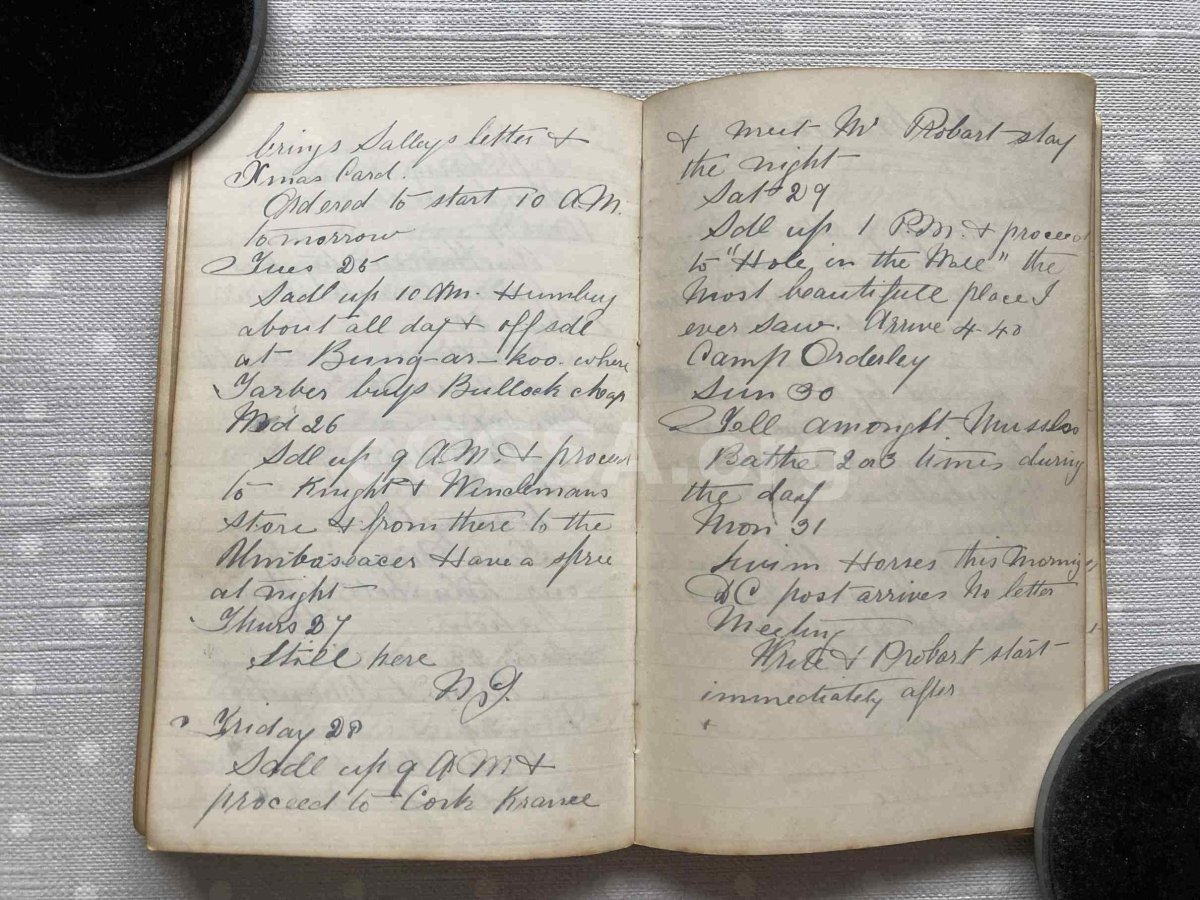 brings Salleys letter &
Xmas Card.
Ordered to start 10 A.M.
tomorrow
Tues 25
Sadl up 10 AM. Humbug
about all day & off sdl
at Bung-ar-koo. where
Tarber buys Bullock cheap
Wed 26
Sdl up 9 A.M. & proceed
to Knight & Windemans
store & from there to the
Umbaseacer Have a spree
at night
Thurs 27
Still here
Friday 28
Sadl up 9 A M &
proceed to Cork Kranee
& meet Mr Robart stay
the night
Sat 29
Sdl up 1 P.M. & proceed
to "Hole in the Wall" the
most beautifull place I
ever saw. Arrive 4-40
Camp Orderley
Sun 30
Fell amongst Mussels
Bathe 2 or 3 times during
the day
Mon 31
Swim Horses this Morning
DC post arrives No letter
Meeting
Write & Probart start
immediately after
eGGSA.org